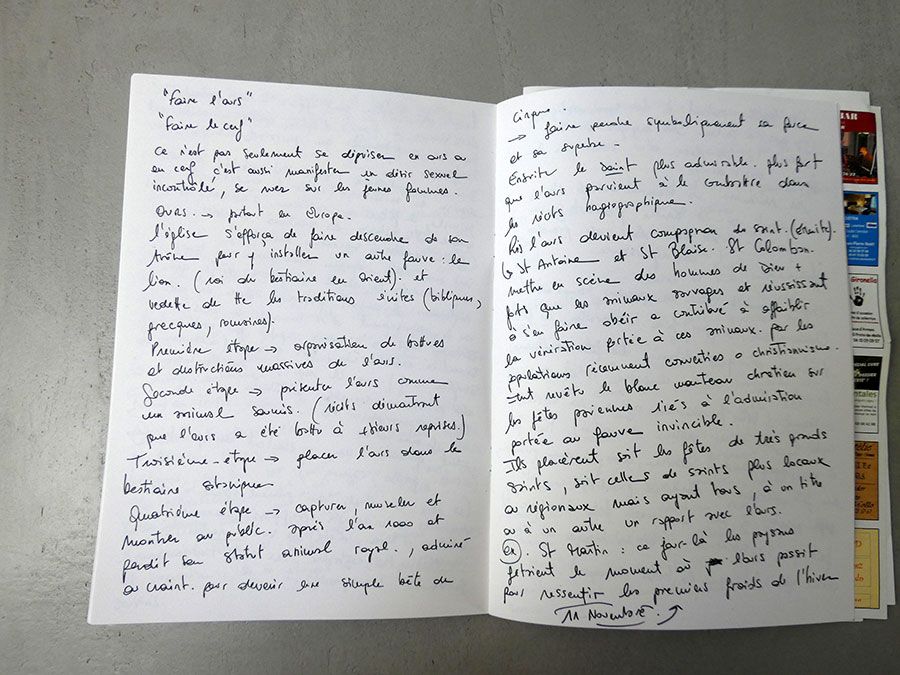 "Faire l'ours"
"Faire le cerf"
Ce n'est pas seulement se déguiser en ours ou
en cerf c'est aussi manifester un désir sexuel
incontrôlé, se ruer sur les jeunes femmes.
Ours. → partout en Europe.
l'église s'efforça de faire descendre de son
trône pour y installer un autre fauve : le
lion. (roi du bestiaire en Orient). et
vedette de tte les traditions écrites (bibliques,
grecques, romaines).
Première étape → organisation de battues
et destructions massives de l'ours.
Seconde étape → présenter l'ours comme
un animal soumis. (récits démontrant
que l'ours a été battu à +sieurs reprises.)
Troisième étape → placer l'ours dans le
bestiaire satanique
Quatrième étape → capturer, museler et
montrer au public. après l'an 1000 et
perdit son statut animal royal., admiré
ou craint. pour devenir une simple bête de
Cirque.
→ faire perdre symboliquement sa force
et sa superbe.
Ensuite le saint plus admirable. plus fort
que l'ours parvient à le combattre dans
les récits hagiographique.
Puis l'ours devient compagnon du saint. (Ermite).
↳ St Antoine et St Blaise. St Colomban.
mettre en scène des hommes de Dieu +
forts que les animaux sauvages et réussissant
à s'en faire obéir a contribué à affaiblir
la vénération portée à ces animaux. par les
populations récemment converties o christianisme.
Fut revêtu le blanc manteau chrétien sur
les fêtes païennes liés à l'admiration
portée au fauve invincible.
Ils placèrent soit les fêtes de très grands
saints, soit celles de saints plus locaux
ou régionaux mais ayant tous, à un titre
ou à un autre un rapport avec l'ours.
Ex. St Martin : ce jour-là les paysans
fêtaient le moment où l'ours passait
pour ressentir les premiers froids de l'hiver
11 Novembre.
BAR
Gironella